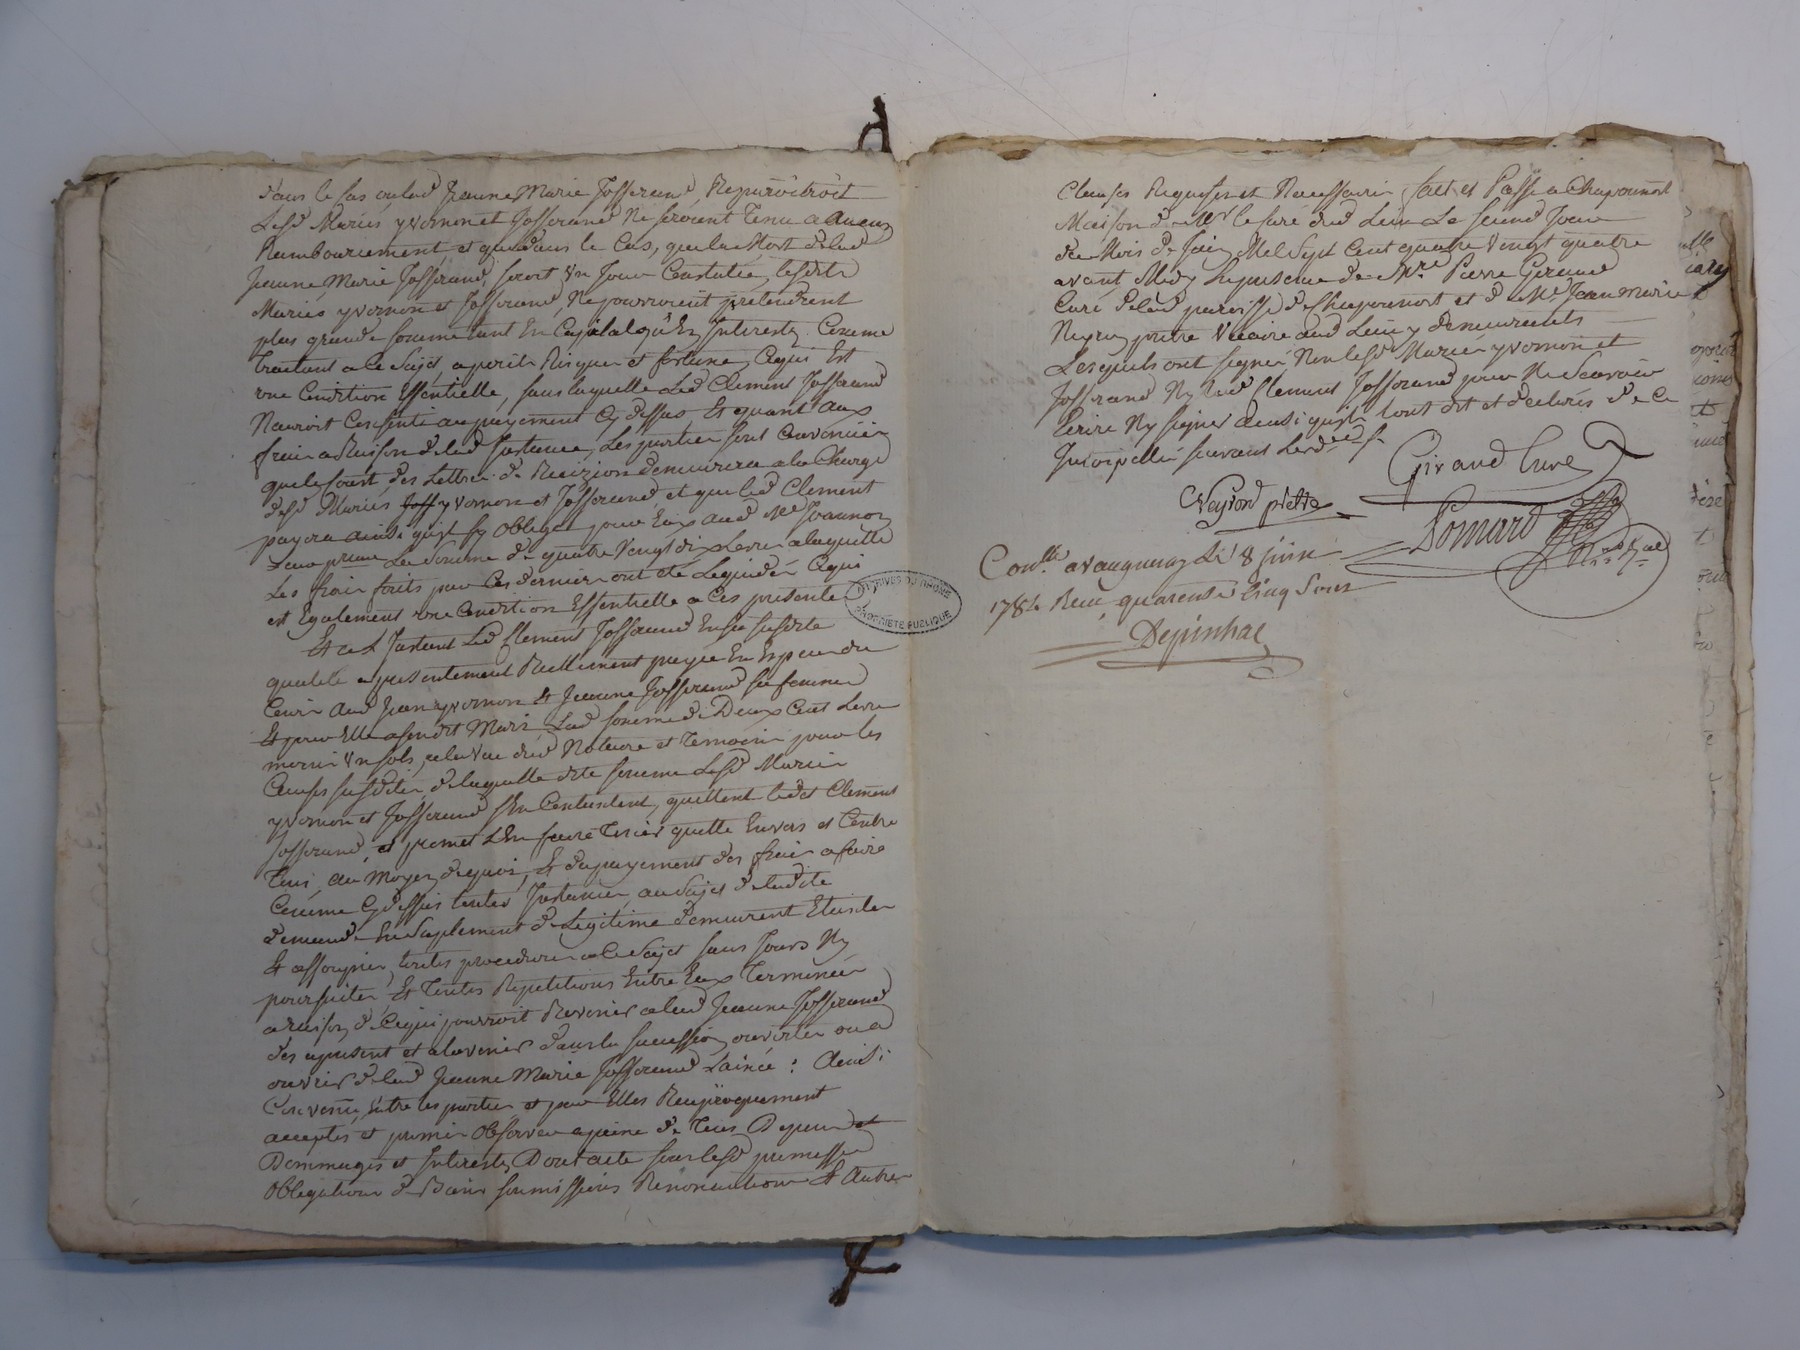 dans le cas ou lad Jeanne Marie Jofferand Reparoitroit
Lesd Mariés yvornon et Jofferand Ne seroient Tenu a Aucun
Rembourcement, et que dans le Cas, que la Mort de lad
Jeanne Marie Jofferand, seroit Un Jour Constatée, lesdits
Mariés yvornon et Jofferand, Ne pourroient pretendrent
plus grande somme tant En Capital qu'En Interests. Comme
traitant a ce Sujet, a peril Risque et fortune, Cequi Est
une Condition Essentielle, sans laquelle Led Clement Jofferand
Nauroit Consenti au payement Cy dessus Et quant aux
frais a Raison de lad Instance, Les parties sont Convenües
que le Coust des Lettres de Recizion demeurera a la Charge
desd Mariés yvornon et Jofferand, et que led Clement
payera ainsi quil sy Oblige pour Eux aud Me Jeannon
Leur procureur La Somme de quatre Vingt dix Livres a laquelle
Les frais faits par Ces derniers ont été Liquidés Cequi
est Egalement une Condition Essentielle a Ces presentes
Et a L'Instant Led Clement Jofferand En sa susdite
qualité a presentement Reellement payée En Especes du
Cours Aud Jean yvornon Et Jeanne Jofferand sa femme
Et pour Elle a sondit Mari Lad somme de Deux Cent Livres
moins Un sols, a la Vue dud Notaire et temoins pour les
Causes susdites, de laquelle dite somme Lesd Mariés
yvornon et Jofferand s'En Contentent, quittent ledit Clement
Jofferand, et promet L'En faire Tenir quitte Envers et Contre
Tous, au Moyen de quoi, Et du payement des frais a faire
Comme Cy dessus toutes Instances, au Sujet de ladite
demande En Suplement de Legitime demeurent Eteintes
Et assoupies, toutes procedures a ce Sujet sans Jours Ny
poursuites, Et Toutes Repetitions Entre Eux Terminées
a raison de Cequi pourroit Revenir a lad Jeanne Jofferand
des a present et a lavenir dans la succession ouvertes ou a
ouvrir de lad Jeanne Marie Jofferand L'ainée : Ainsi
Convenu, Entre les parties et par Elles Reciproquement
acceptés et promis Observer a peine de Tous Depens et
Dommages et Interests, Dont acte sous lesd promesses
Obligations de Biens soumissions Renonciations Et Autres
Clauses Requises et Necessaires, fait et Passé a Chaponnost
Maison de Mr le Curé dud Lieu Le second Jour
du Mois de Juin Mil Sept Cent quatre Vingt quatre
avant Midy En presence de Mre Pierre Giraud
Curé de lad paroisse de Chaponnost et de Me Jean Marie
Neyron pretre Vicaire aud Lieu y demeurants
Lesquels ont signé Non lesd Mariés yvornon et
Jofferand Ny led Clement Jofferand pour Ne Scavoir
Ecrire Ny signer ainsi quils lont dit et declarés de Ce
Interpellés suivant Lord.ce
Giraud Curé
Neyron pretre
Lomard
Conllé a vaugneray Le 8 juin
1784 Recu quarente Cinq Sous
Depinhac
ARCHIVES DU RHONE
PROPRIETE PUBLIQUE